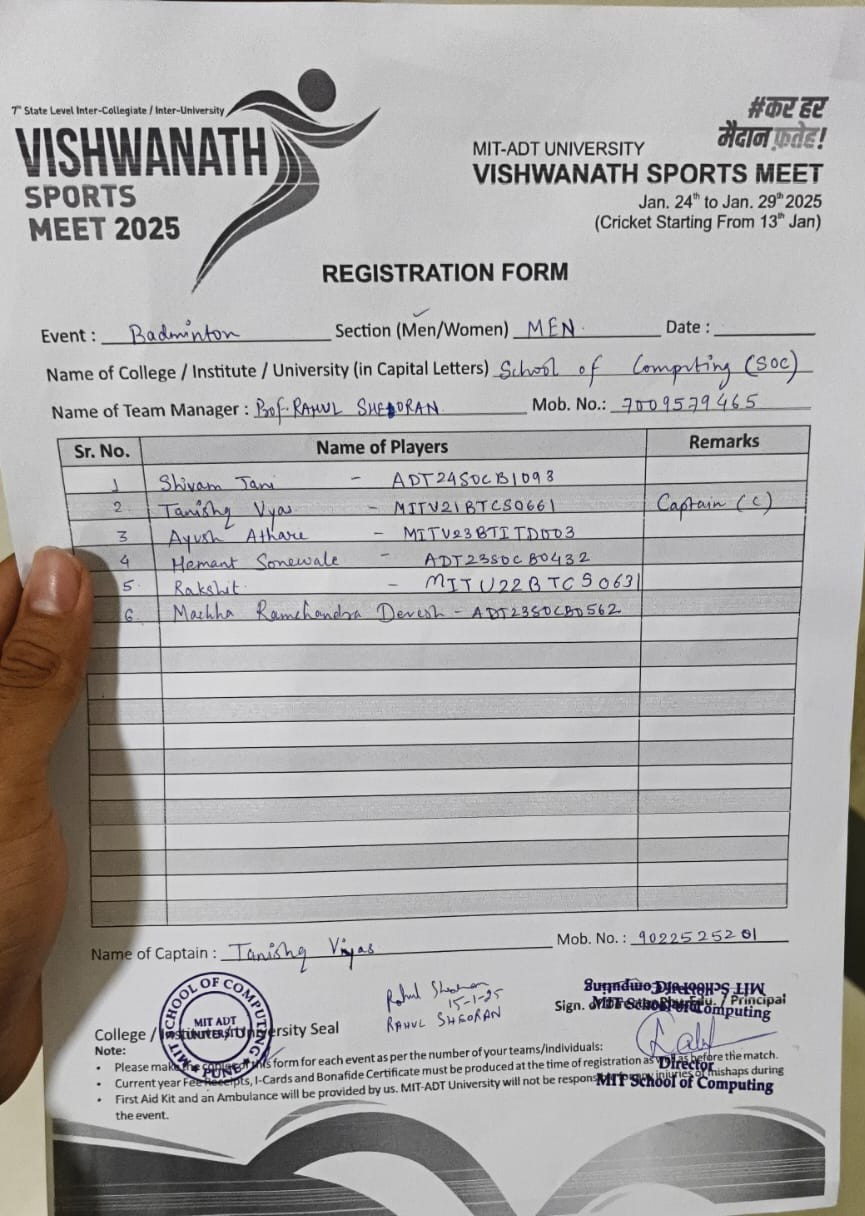 7th State Level Inter-Collegiate / Inter-University
VISHWANATH
SPORTS
MEET 2025
#कर हर
मैदान फ़तेह!
MIT-ADT UNIVERSITY
VISHWANATH SPORTS MEET
Jan. 24th to Jan. 29th 2025
(Cricket Starting From 13th Jan)
REGISTRATION FORM
Event : Badminton Section (Men/Women) MEN. Date :
Name of College / Institute / University (in Capital Letters) School of Computing (SOC)
Name of Team Manager : Prof. RAHUL SHEORAN Mob. No.: 7009579465
Sr. No. Name of Players Remarks
1 Shivam Jani - ADT24SOCB1093
2. Tanishq Vyas - MITU21BTCS0661 Captain (C)
3 Ayush Athare - MITU23BTITD003
4 Hemant Sonewale - ADT23SOCB0432
5. Rakshit. - MITU22BTCS0631
6. Machha Ramchandra Devesh - ADT23SOCB0562
Name of Captain : Tanishq Vyas Mob. No. : 9022525201
MIT SCHOOL OF COMPUTING
MIT ADT
UNIVERSITY
PUNE
College / Institute / University Seal
Rahul Sheoran
15-1-25
RAHUL SHEORAN
Director
MIT School of Computing
Sign. of Director Phy. Edu. / Principal
MIT School of Computing
Director
MIT School of Computing
Note:
• Please make the copies of this form for each event as per the number of your teams/individuals:
• Current year Fee Receipts, I-Cards and Bonafide Certificate must be produced at the time of registration as well as before the match.
• First Aid Kit and an Ambulance will be provided by us. MIT-ADT University will not be responsible for any injuries or mishaps during
the event.